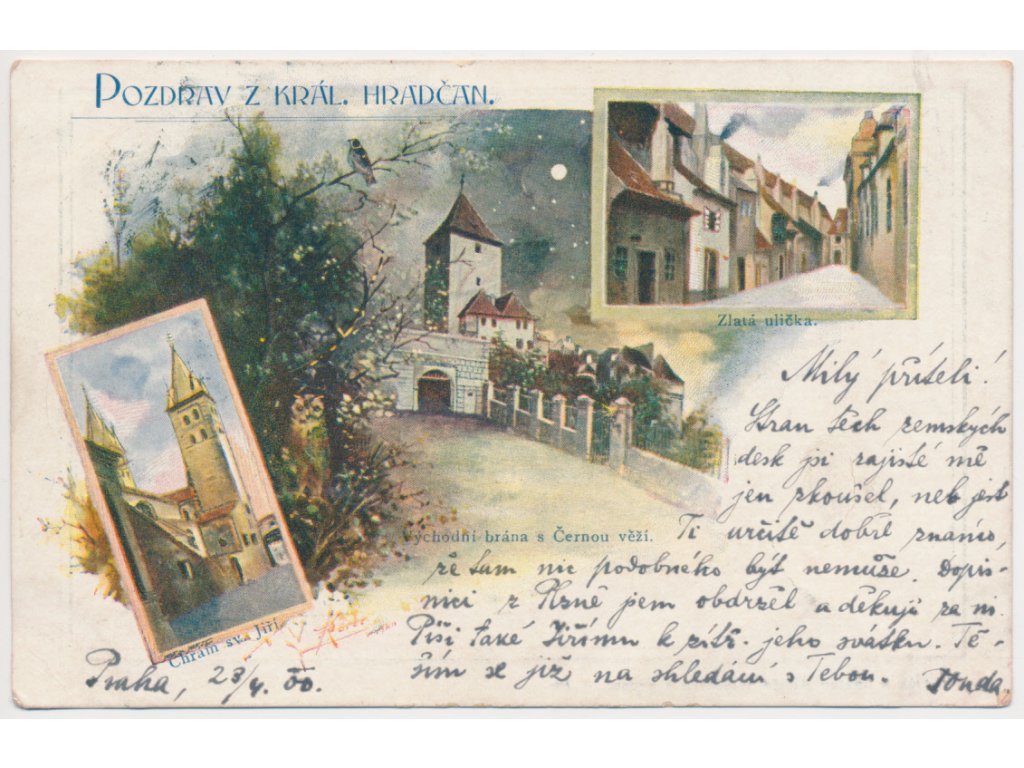 POZDRAV Z KRÁL. HRADČAN.
Zlatá ulička.
Milý příteli!
Stran těch zemských
desk jsi zajisté mě
jen zkoušel, neb jest
Východní brána s Černou věží.
Ti určitě dobře známo,
že tam nic podobného být nemůže. Dopis-
nici z Plzně jsem obdržel a děkuji za ni.
Píši také Jiřímu k zítř. jeho svátku. Tě-
ším se již na shledání s Tebou. Tonda.
Chrám sv. Jiří.
Praha, 23/4 00.